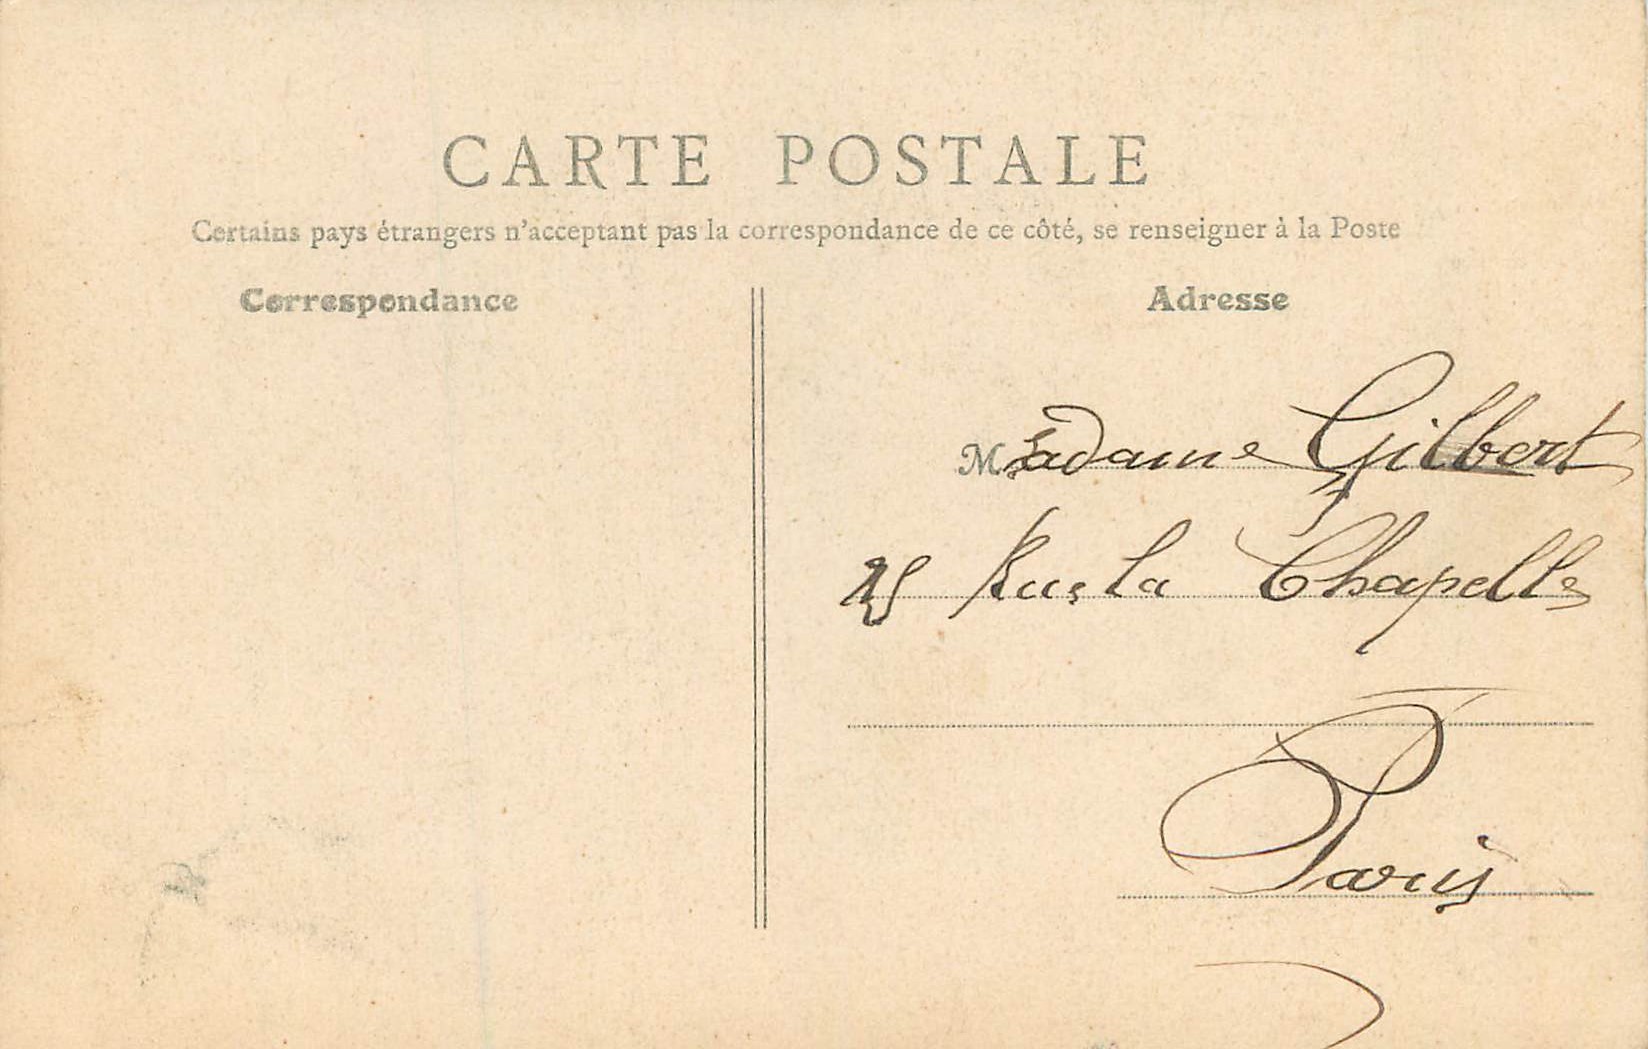 CARTE POSTALE
Certains pays étrangers n'acceptant pas la correspondance de ce côté, se renseigner à la Poste
Correspondance
Adresse
Madame Gilbert
25 Rue la Chapelle
Paris